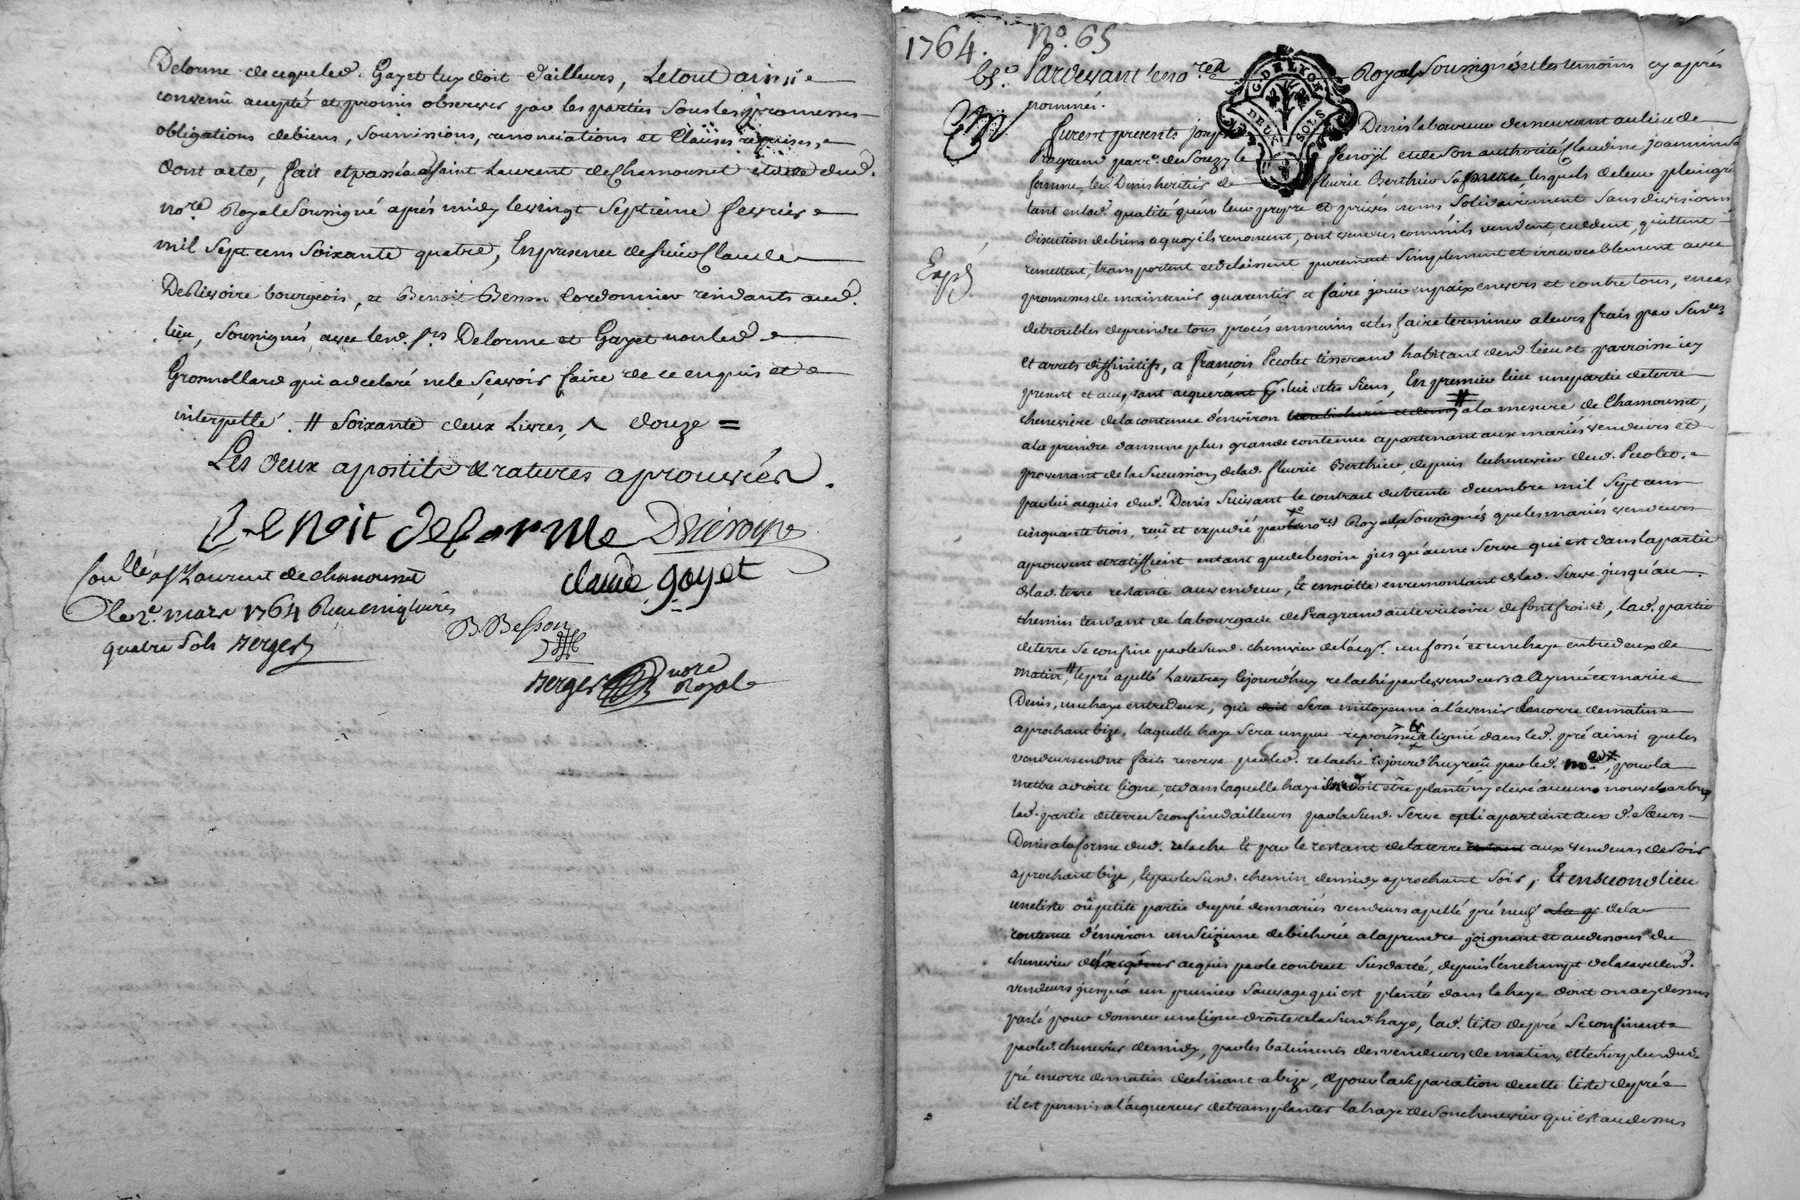 Delorme de ce que led. Gayet luy doit d'ailleurs, Le tout ainsi
convenu accepté et promis observer par les parties sous les promesses
obligations de biens, soumissions, renonciations et Clauses requises,
dont acte, fait et passé a Saint Laurent de Chamousset etude dud.
no.re Royal Soussigné après midy le vingt Septième fevrier
mil Sept cens Soixante quatre, En presence de Sieur Claude
bourgeois, et Benoit Besson Cordonnier residants aud.
lieu, Soussignés avec lesd. Srs Delorme et Gayet non led.
Gromollard qui a declaré ne le Scavoir faire de ce enquis et
interpellé. # Soixante deux Livres, ^ douze =
Les deux apostiles & ratures aprouvées.
Benoit delorme
claude gayet
Con.llé a St Laurent de chamousset
le 2.e mars 1764 Reçu
quatre Sols Berger
B. Besson
Berger nore Royal
1764. No. 65
65.e Pardevant le no.re Royal Soussigné & les temoins cy après
GDELYON
DELA SOLS
nommés.
furent presents Denis laboureur demeurant au lieu de
Pragrand parr.e de Souzy le et de son authorité Claudine Joannin Sa
femme, led Denis heritier de fleurie Berthier Sa mere, lesquels de leur plein gré
tant en lad. qualité qu'en leur propre et privés noms Solidairement Sans division ni
discution de biens a quoy ils renoncent, ont vendu comm'ils vendent, cedent, quittent
Expd.
remettent, transportent et delaissent purement Simplement et irrevocablement avec
promesse de maintenir garentir et faire jouir en paix envers et contre tous, en cas
de troubles de prendre tous procés en mains et les faire terminer a leurs frais par Sen.ces
et arrets diffinitifs, a François Pecolet tisserand habitant aud lieu et parroisse icy
present et acceptant acquerant p.r lui et les Siens, En premier lieu une partie de terre
cheneviere de la contenue d'environ # a la mesure de Chamousset,
a la prendre dans une plus grande contenue apartenant aux mariés vendeurs et
provenant de la Succession de lad. fleurie Berthier, depuis le chenevier dud. Pecolet
par lui acquis dud. Denis Suivant le contract du trente decembre mil Sept cens
cinquante trois, reçu et expedié par le no.re Royal Soussigné, que les mariés vendeurs
aprouvent et ratiffient en tant que de besoin jusqu'a une Serve qui est dans la partie
de lad. terre restante aux vendeurs, Et ensuitte en remontant de lad. Serve jusqu'au
chemin tendant de la bourgade de Pragrand au territoire de font froide, lad. partie
de terre Se confine par le Susd. chenevier de l'acq.r un fossé et une haye entre deux de
matin, # le pré apellé Lavatrey le jourd'huy relaché par les vendeurs a Aymé et marie
Denis, une haye entre deux, qui doit Sera mitoyenne a l'avenir Encorre de matin
aprochant bize, laquelle haye Sera un peu repoussée alignée dans led. pré ainsi que les
vendeurs en ont faits reserve par led. relaché le jourd'huy reçu par led. me, pour la
mettre a droite ligne, et dans laquelle haye doit être planté ny elevé aucuns nouvel arbres
lad. partie de terre Se confine d'ailleurs par la Susd. Serve qui apartient aux d. Sœurs
Denis a la forme dud. relaché Et par le restant de la terre restant aux vendeurs de Soir
aprochant bize, Et par le Susd. chemin de midy aprochant Soir, Et en second lieu
une liste ou petite partie de pré des mariés vendeurs apellé pré neuf de la
contenue d'environ un Seizieme de bicherée a la prendre joignant et au dessous du
chenevier acquis par le contract Susdatté, depuis l'enchampt de la cave desd.
vendeurs jusqu'a un prunier Sauvage qui est planté dans la haye dont on a cy dessus
parlé pour donner une ligne droite a la Susd. haye, lad. liste de pré Se confinant
par led. chenevier de midy, par les batiments des vendeurs de matin, et le Surplus dud.
pré encorre de matin declinant a bize, & pour la Separation de cette liste de pré
il est permis a l'acquereur de transplanter la haye de Son chenevier qui est au dessus